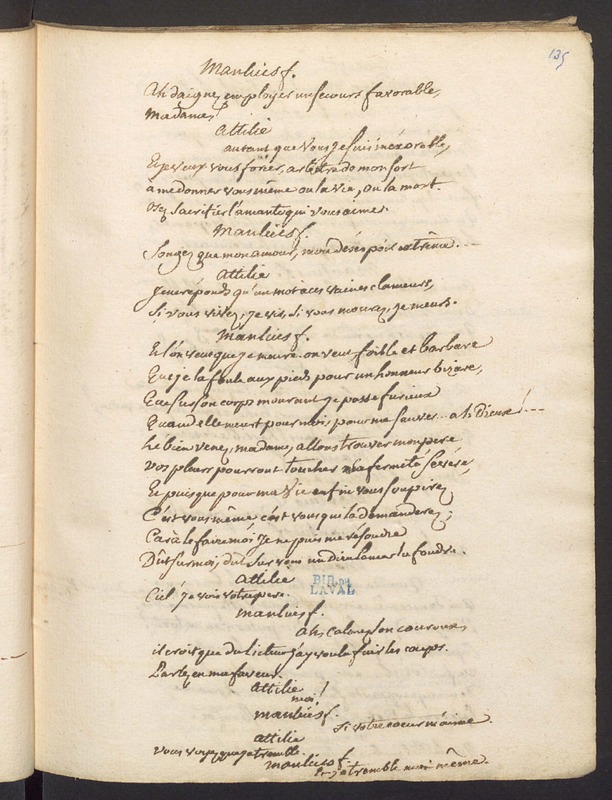 135
Manlius f.
Ah daignez employer un secours favorable,
Madame!
Attilie
autant que vous je suis inexorable,
Et je veux vous forcer, arbitre de mon sort
à me donner vous même ou la vie, ou la mort.
osez sacrifier l'amante qui vous aime.
Manlius f.
Songez que mon amour, mon désespoir extrême...
Attilie
Je ne réponds qu'un mot a ces vaines clameurs,
Si vous vivez, je vis, si vous mourez, je meurs.
Manlius f.
Et l'on veut que je meure. on veut foible et barbare
Que je la foule aux pieds pour un honneur bizare,
Que sur son corps mourant je passe furieux
Quand elle meurt pour moi, pour me sauver... ah Dieux!...
hé bien venez, madame, allons trouver mon pere
Vos pleurs pourront toucher sa fermeté sévére,
Et puisque pour ma vie enfin vous soupirez
C'est vous même c'est vous qui la demanderez;
Car à le faire moi je ne puis me résoudre
Dût sur moi, dût sur vous un Dieu lancer la foudre.
Attilie
Ciel! je vois votre pere.
BIB. DE
LAVAL
manlius f.
Ah, calmez son couroux,
il croit que du licteur j'ay voulu fuir les coups.
Parlez en ma faveur.
Attilie
moi!
manlius f.
Si votre coeur m'aime.
attilie
vous voyez que je tremble.
manlius f.
je tremble moi même.